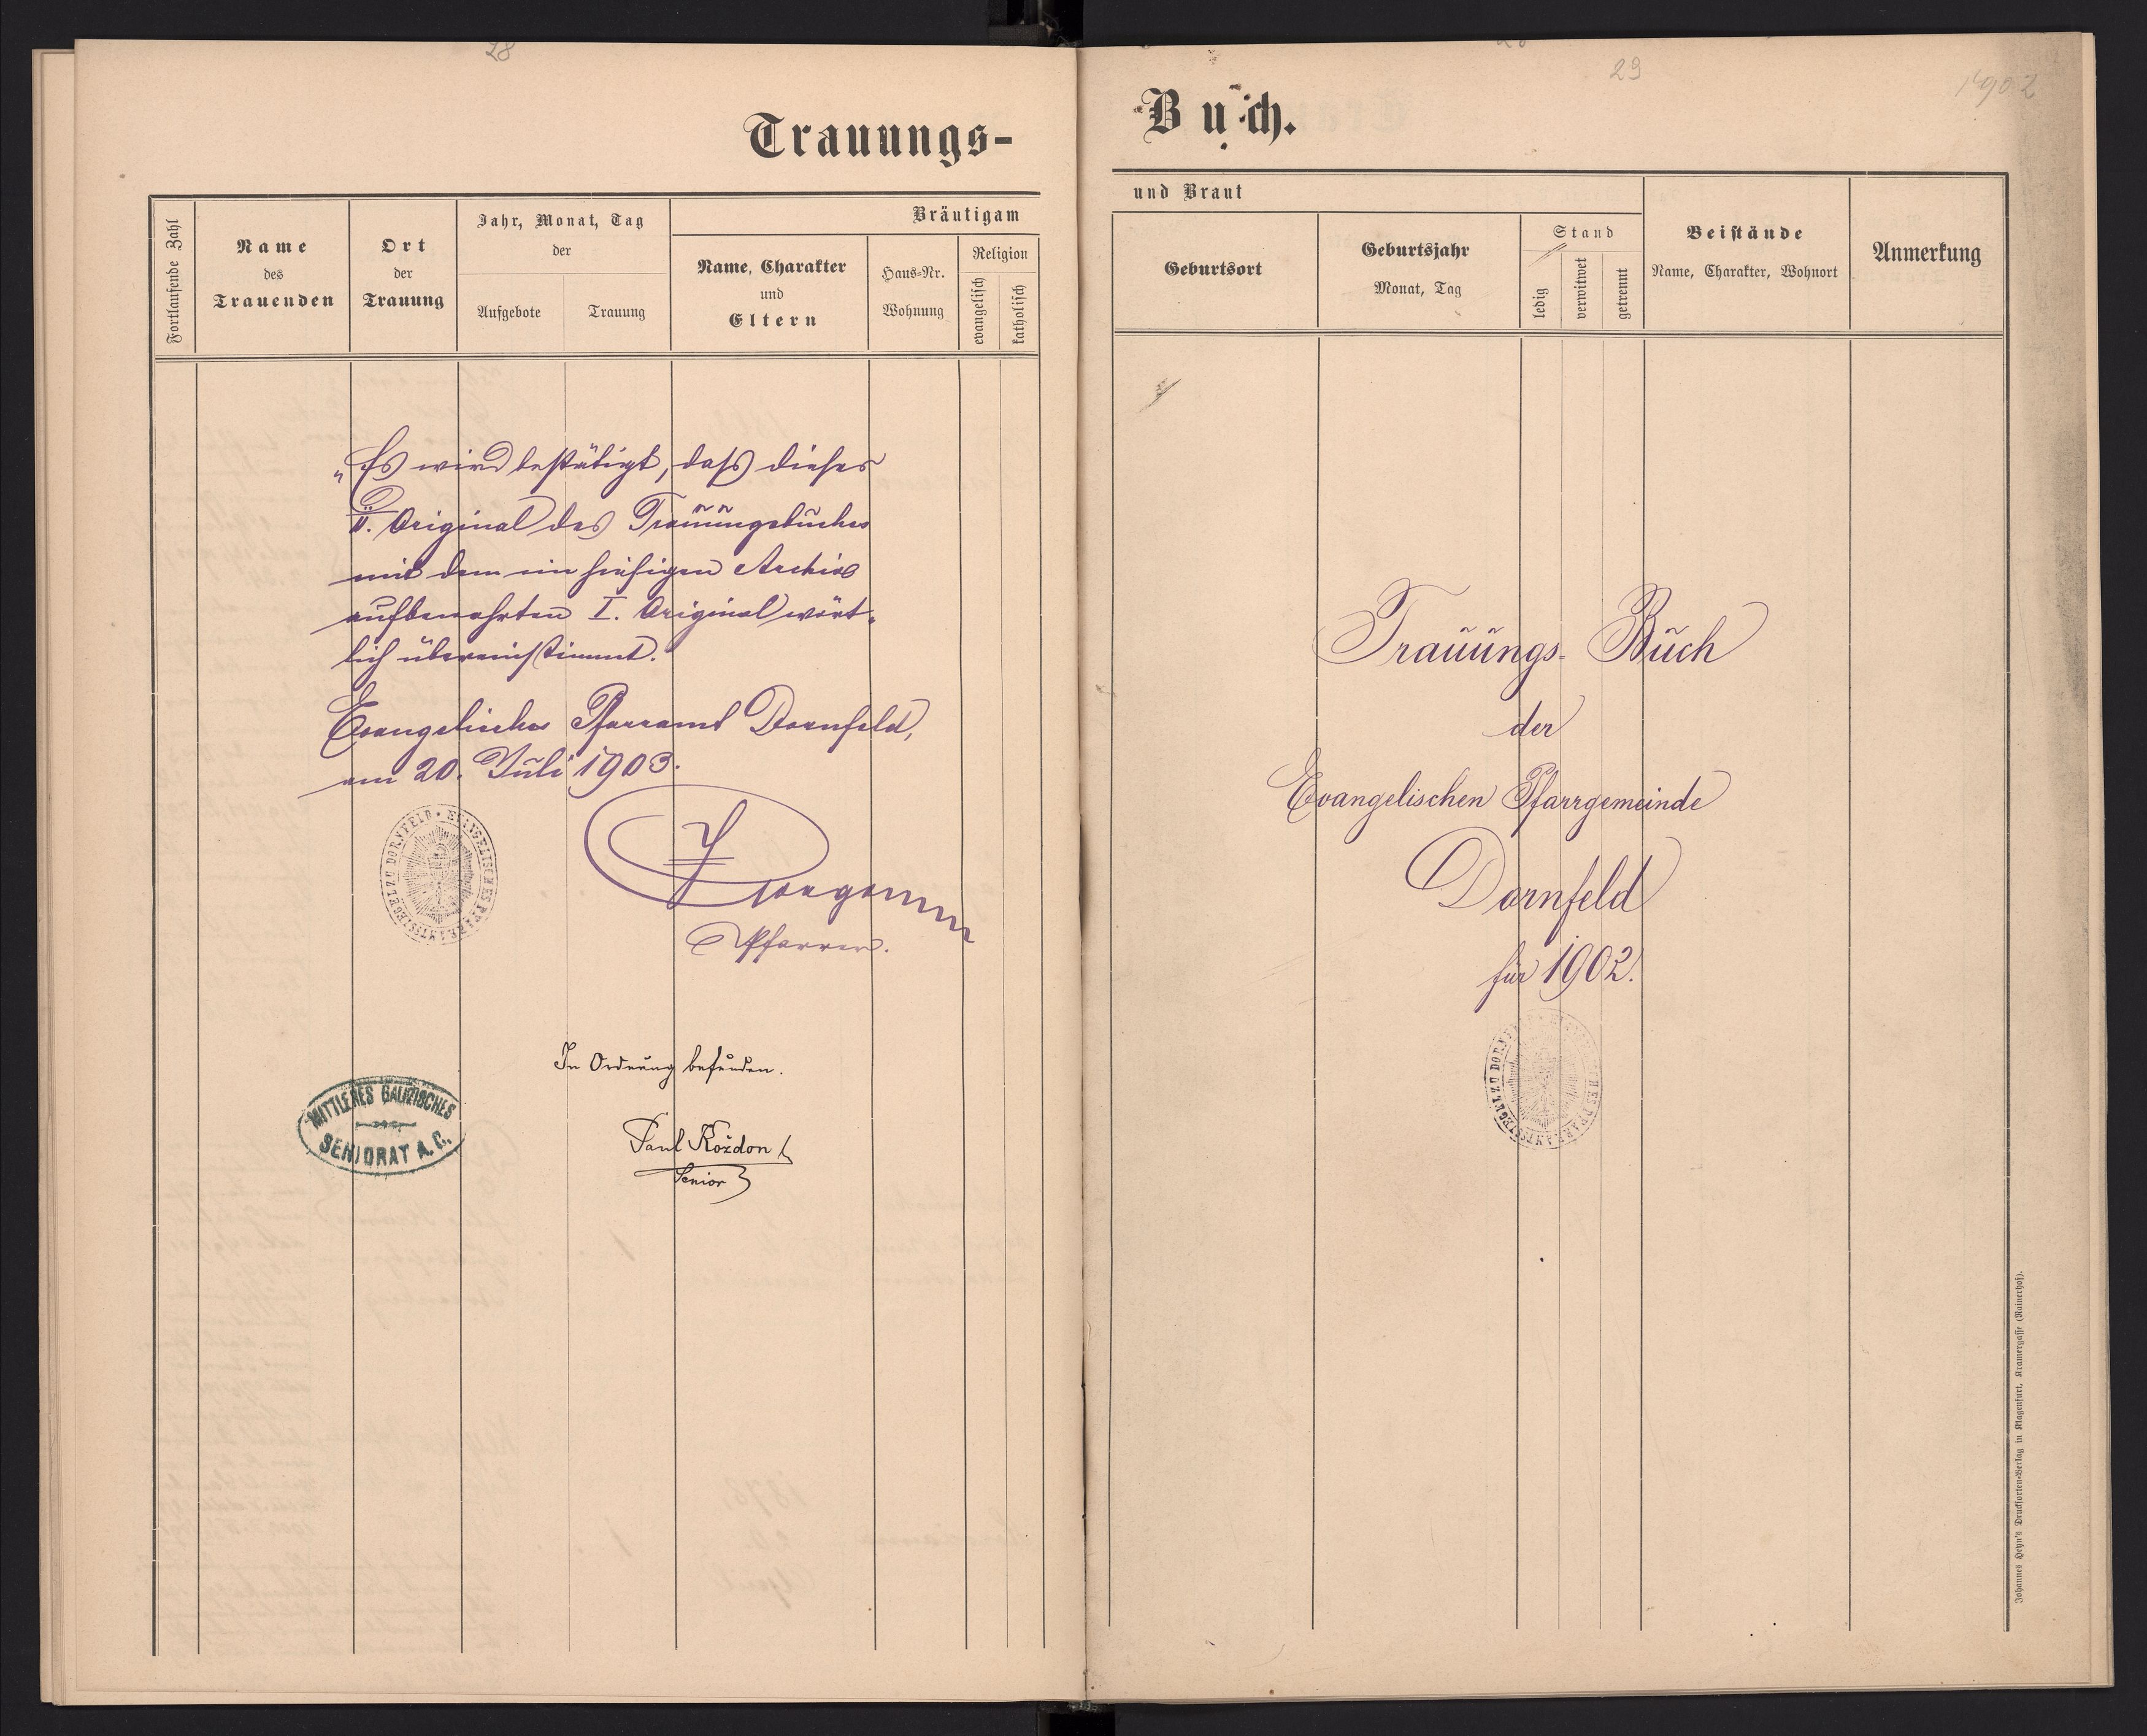 28
Trauungs-
Fortlaufende Zahl
Name
des
Trauenden
Ort
der
Trauung
Jahr, Monat, Tag
der
Aufgebote
Trauung
Bräutigam
Name, Charakter
und
Eltern
Haus-Nr.
Wohnung
Religion
evangelisch
katholisch
„Es wird bestätigt, daß dieses
II. Original des Trauungsbuches
mit dem im hiesigen Archiv
aufbewahrten I. Original wört-
lich übereinstimmt.
Evangelisches Pfarramt Dornfeld,
am 20. Juli 1903.
EVANGELISCHES PFARRAMTSSIEGEL ZU DORNFELD
Pfarrer.
In Ordnung befunden.
MITTLERES GALIZISCHES
SENIORAT A. C.
Paul Kozdon
Senior
29
1902
Buch.
und Braut
Geburtsort
Geburtsjahr
Monat, Tag
Stand
ledig
verwitwet
getrennt
Beistände
Name, Charakter, Wohnort
Anmerkung
Trauungs-Buch
der
Evangelischen Pfarrgemeinde
Dornfeld
für 1902.
EVANGELISCHES PFARRAMTSSIEGEL ZU DORNFELD
Johannes Heyn's Drucksorten-Verlag in Klagenfurt, Kramergasse (Rainerhof).